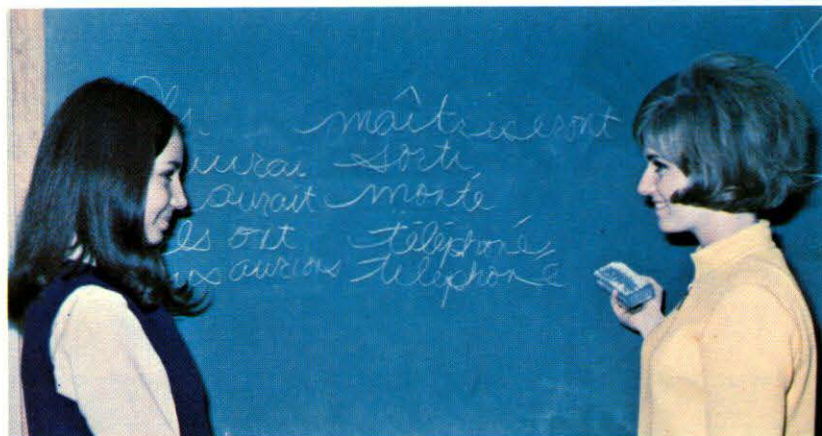 maîtriseront
aurai sorti
aurait monté
ils ont téléphoné
aurions téléphoné